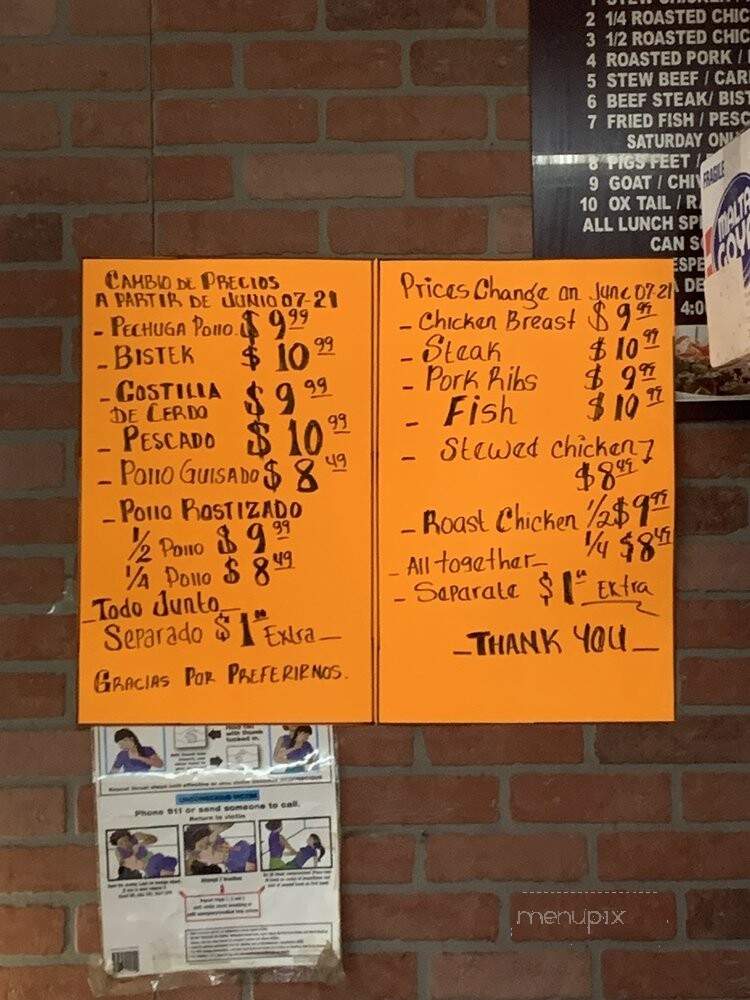 2 1/4 ROASTED CHIC
3 1/2 ROASTED CHIC
4 ROASTED PORK /
5 STEW BEEF / CAR
6 BEEF STEAK/ BIST
7 FRIED FISH / PESC
SATURDAY ONL
8 PIGS FEET /
9 GOAT / CHIV
10 OX TAIL / R
ALL LUNCH SP
CAN S
ESPE
A DE
4:0
FRAGILE
MALTA
GOYA
CAMBIO DE PRECIOS
A PARTIR DE JUNIO 07-21
- PECHUGA POLLO. $ 9 99
- BISTEK $ 10 99
- COSTILLA $ 9 99
DE CERDO
- PESCADO $ 10 99
- POLLO GUISADO $ 8 49
- POLLO ROSTIZADO
1/2 POLLO $ 9 99
1/4 POLLO $ 8 49
- Todo Junto -
Separado $ 1 00 Extra -
GRACIAS POR PREFERIRNOS.
Prices Change on June 07-21
- Chicken Breast $ 9 99
- Steak $ 10 99
- Pork Ribs $ 9 99
- Fish $ 10 99
- Stewed chicken
$ 8 49
- Roast Chicken 1/2 $ 9 99
1/4 $ 8 49
- All together -
- Saparate $ 1 00 Extra
- THANK YOU -
UNCONSCIOUS VICTIM
Phone 911 or send someone to call.
Return to victim
menupix